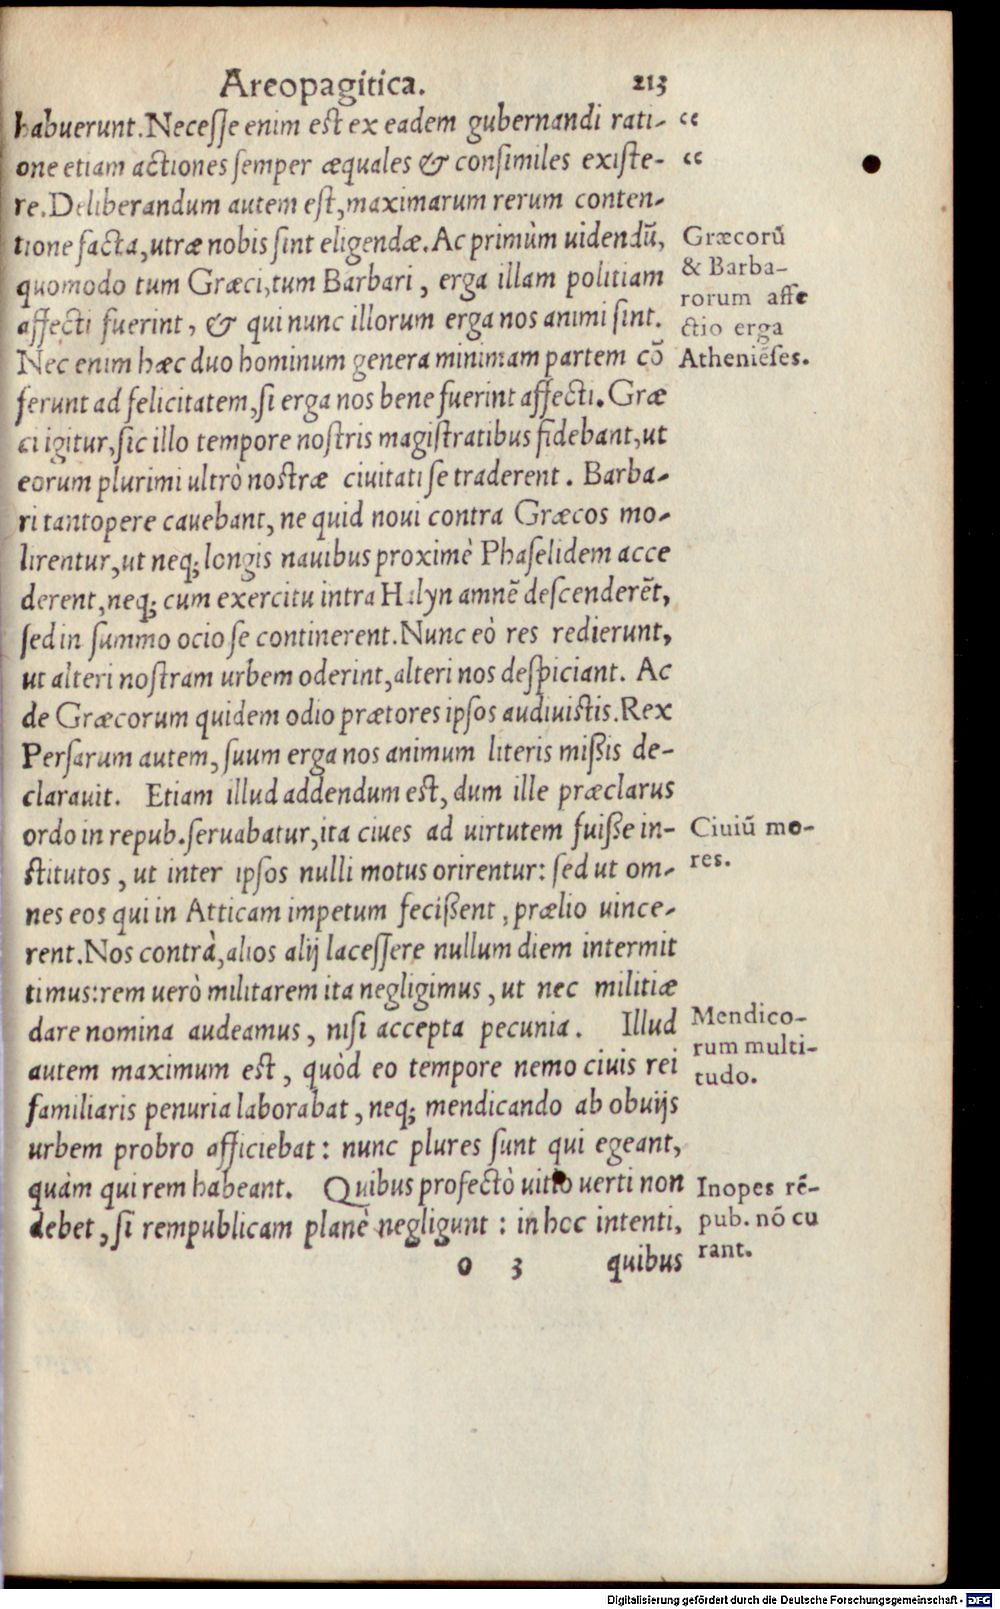 Areopagitica. 213
habuerunt. Necesse enim est ex eadem gubernandi rati- "
one etiam actiones semper æquales & consimiles existe- "
re. Deliberandum autem est, maximarum rerum conten-
tione facta, utræ nobis sint eligendæ. Ac primùm uidendū,
quomodo tum Græci, tum Barbari, erga illam politiam
affecti fuerint, & qui nunc illorum erga nos animi sint.
Nec enim hæc duo hominum genera minimam partem cō
ferunt ad felicitatem, si erga nos bene fuerint affecti. Græ
ci igitur, sic illo tempore nostris magistratibus fidebant, ut
eorum plurimi ultrò nostræ ciuitati se traderent. Barba-
ri tantopere cauebant, ne quid noui contra Græcos mo-
lirentur, ut neq; longis nauibus proximè Phaselidem acce
derent, neq; cum exercitu intra Halyn amnē descenderēt,
sed in summo ocio se continerent. Nunc eò res redierunt,
ut alteri nostram urbem oderint, alteri nos despiciant. Ac
de Græcorum quidem odio prætores ipsos audiuistis. Rex
Persarum autem, suum erga nos animum literis mißis de-
clarauit. Etiam illud addendum est, dum ille præclarus
ordo in repub. seruabatur, ita ciues ad uirtutem fuiße in-
stitutos, ut inter ipsos nulli motus orirentur: sed ut om-
nes eos qui in Atticam impetum fecißent, prælio uince-
rent. Nos contrà, alios alij lacessere nullum diem intermit
timus: rem uerò militarem ita negligimus, ut nec militiæ
dare nomina audeamus, nisi accepta pecunia. Illud
autem maximum est, quòd eo tempore nemo ciuis rei
familiaris penuria laborabat, neq; mendicando ab obuijs
urbem probro afficiebat: nunc plures sunt qui egeant,
quàm qui rem habeant. Quibus profectò uitio uerti non
debet, si rempublicam planè negligunt: in hoc intenti,
o 3 quibus
Græcorū
& Barba-
rorum affe
ctio erga
Atheniēses.
Ciuiū mo-
res.
Mendico-
rum multi-
tudo.
Inopes rē-
pub. nō cu
rant.
Digitalisierung gefördert durch die Deutsche Forschungsgemeinschaft - DFG